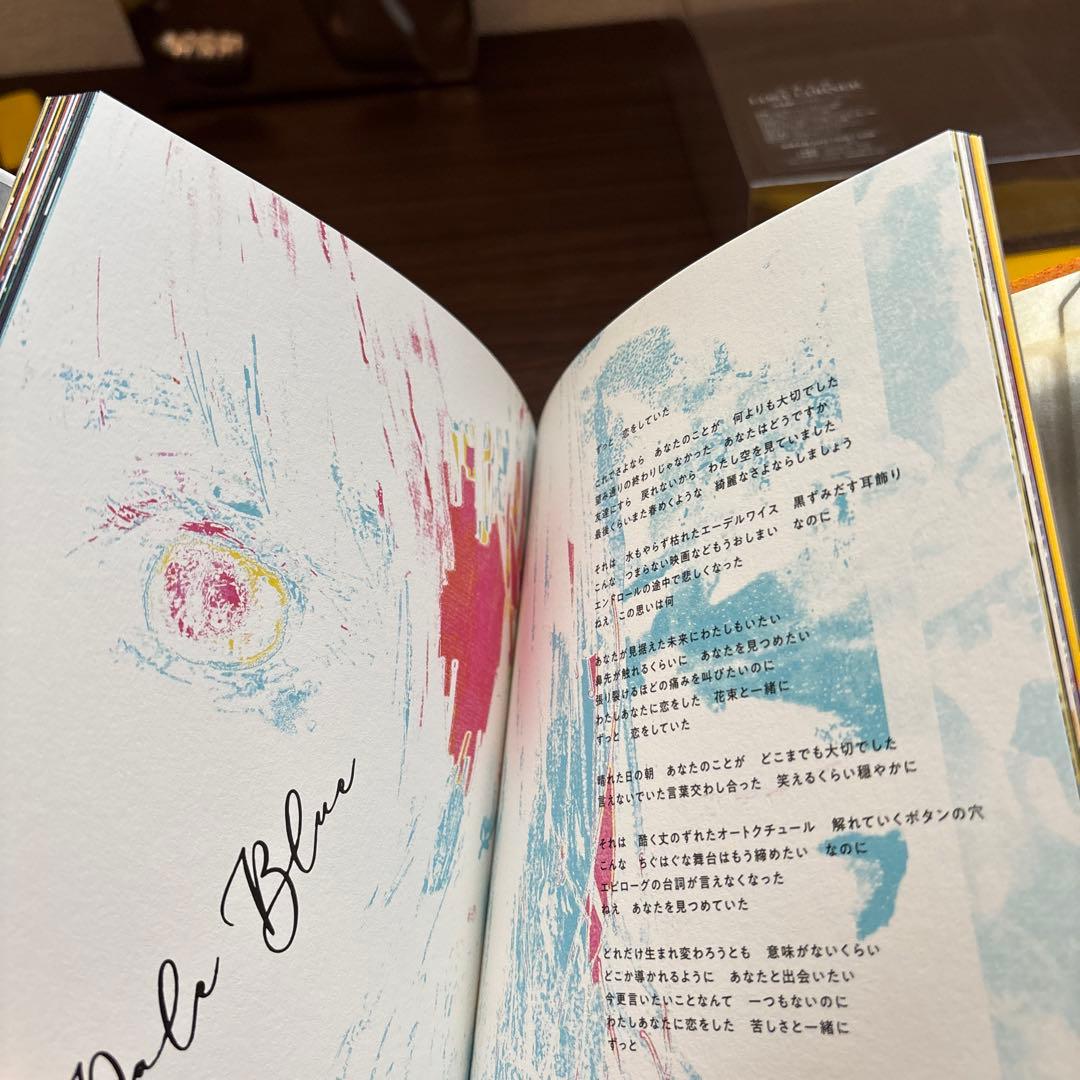 Pale Blue
ずっと　恋をしていた
これでさよなら　あなたのことが　何よりも大切でした
望み通りの終わりじゃなかった　あなたはどうですか
友達にすら　戻れないから　わたし空を見ていました
最後くらいまた春めくような　綺麗なさよならしましょう
それは　水もやらず枯れたエーデルワイス　黒ずみだす耳飾り
こんな　つまらない映画などもうおしまい　なのに
エンドロールの途中で悲しくなった
ねえ　この思いは何
あなたが見据えた未来にわたしもいたい
鼻先が触れるくらいに　あなたを見つめたい
張り裂けるほどの痛みを叫びたいのに
わたしあなたに恋をした　花束と一緒に
ずっと　恋をしていた
晴れた日の朝　あなたのことが　どこまでも大切でした
言えないでいた言葉交わし合った　笑えるくらい穏やかに
それは　酷く丈のずれたオートクチュール　解れていくボタンの穴
こんな　ちぐはぐな舞台はもう締めたい　なのに
エピローグの台詞が言えなくなった
ねえ　あなたを見つめていた
どれだけ生まれ変わろうとも　意味がないくらい
どこか導かれるように　あなたと出会いたい
今更言いたいことなんて　一つもないのに
わたしあなたに恋をした　苦しさと一緒に
ずっと